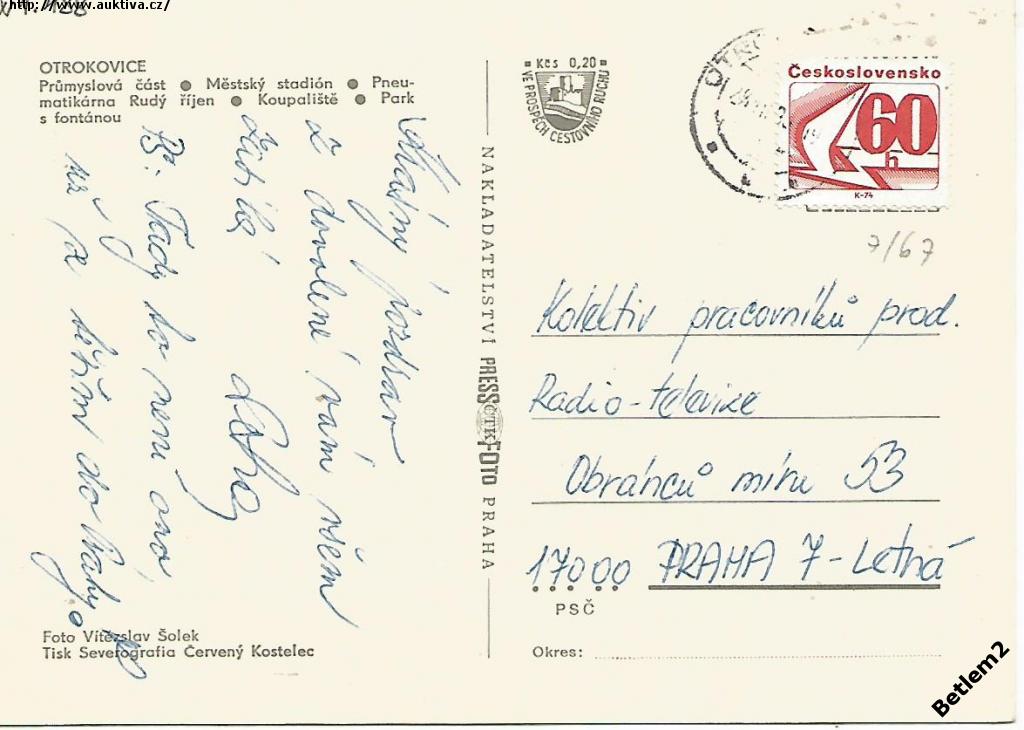 http://www.auktiva.cz/
OTROKOVICE
Průmyslová část ● Městský stadión ● Pneu-
matikárna Rudý říjen ● Koupaliště ● Park
s fontánou
Šťastný pozdrav
z dovolené vám všem
PS: Tady to není ono
už se těším do Prahy.
Foto Vítězslav Šolek
Tisk Severografia Červený Kostelec
NAKLADATELSTVÍ PRESSFOTO PRAHA
ČTK
Kčs 0,20
VE PROSPĚCH CESTOVNÍHO RUCHU
OTRO
Československo
60
h
K-74
7/67
Kolektiv pracovníků prod.
Radio-televize
Obránců míru 53
17000 PRAHA 7-Letná
PSČ
Okres:
Betlem2